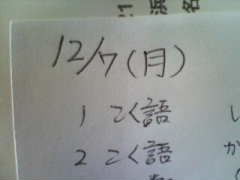 12/7(月)
1 こく語
2 こく語